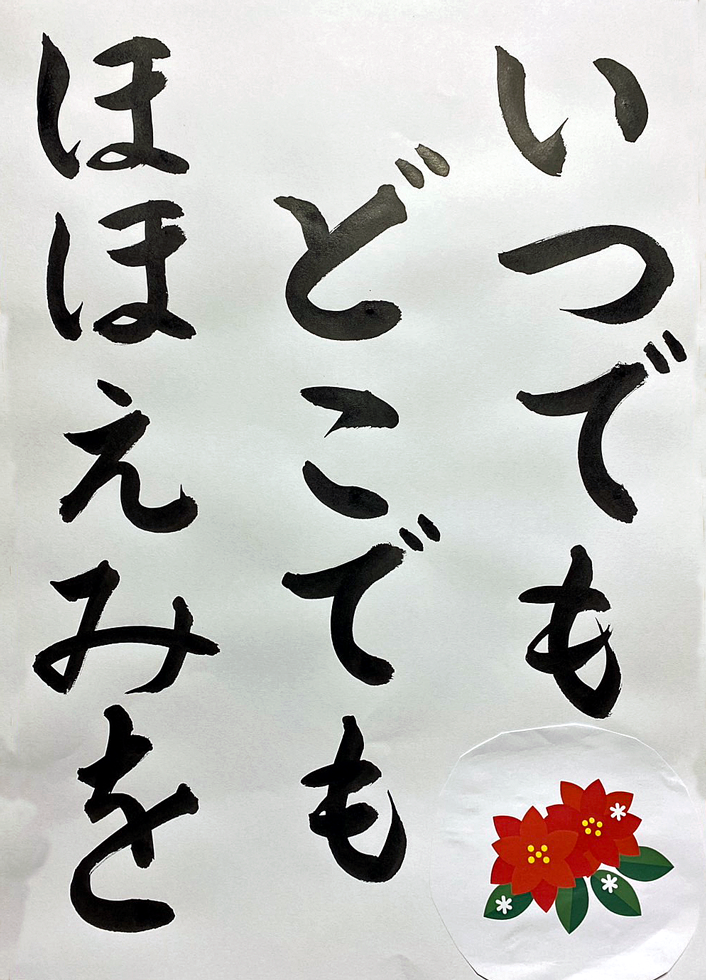 いつでも
どこでも
ほほえみを